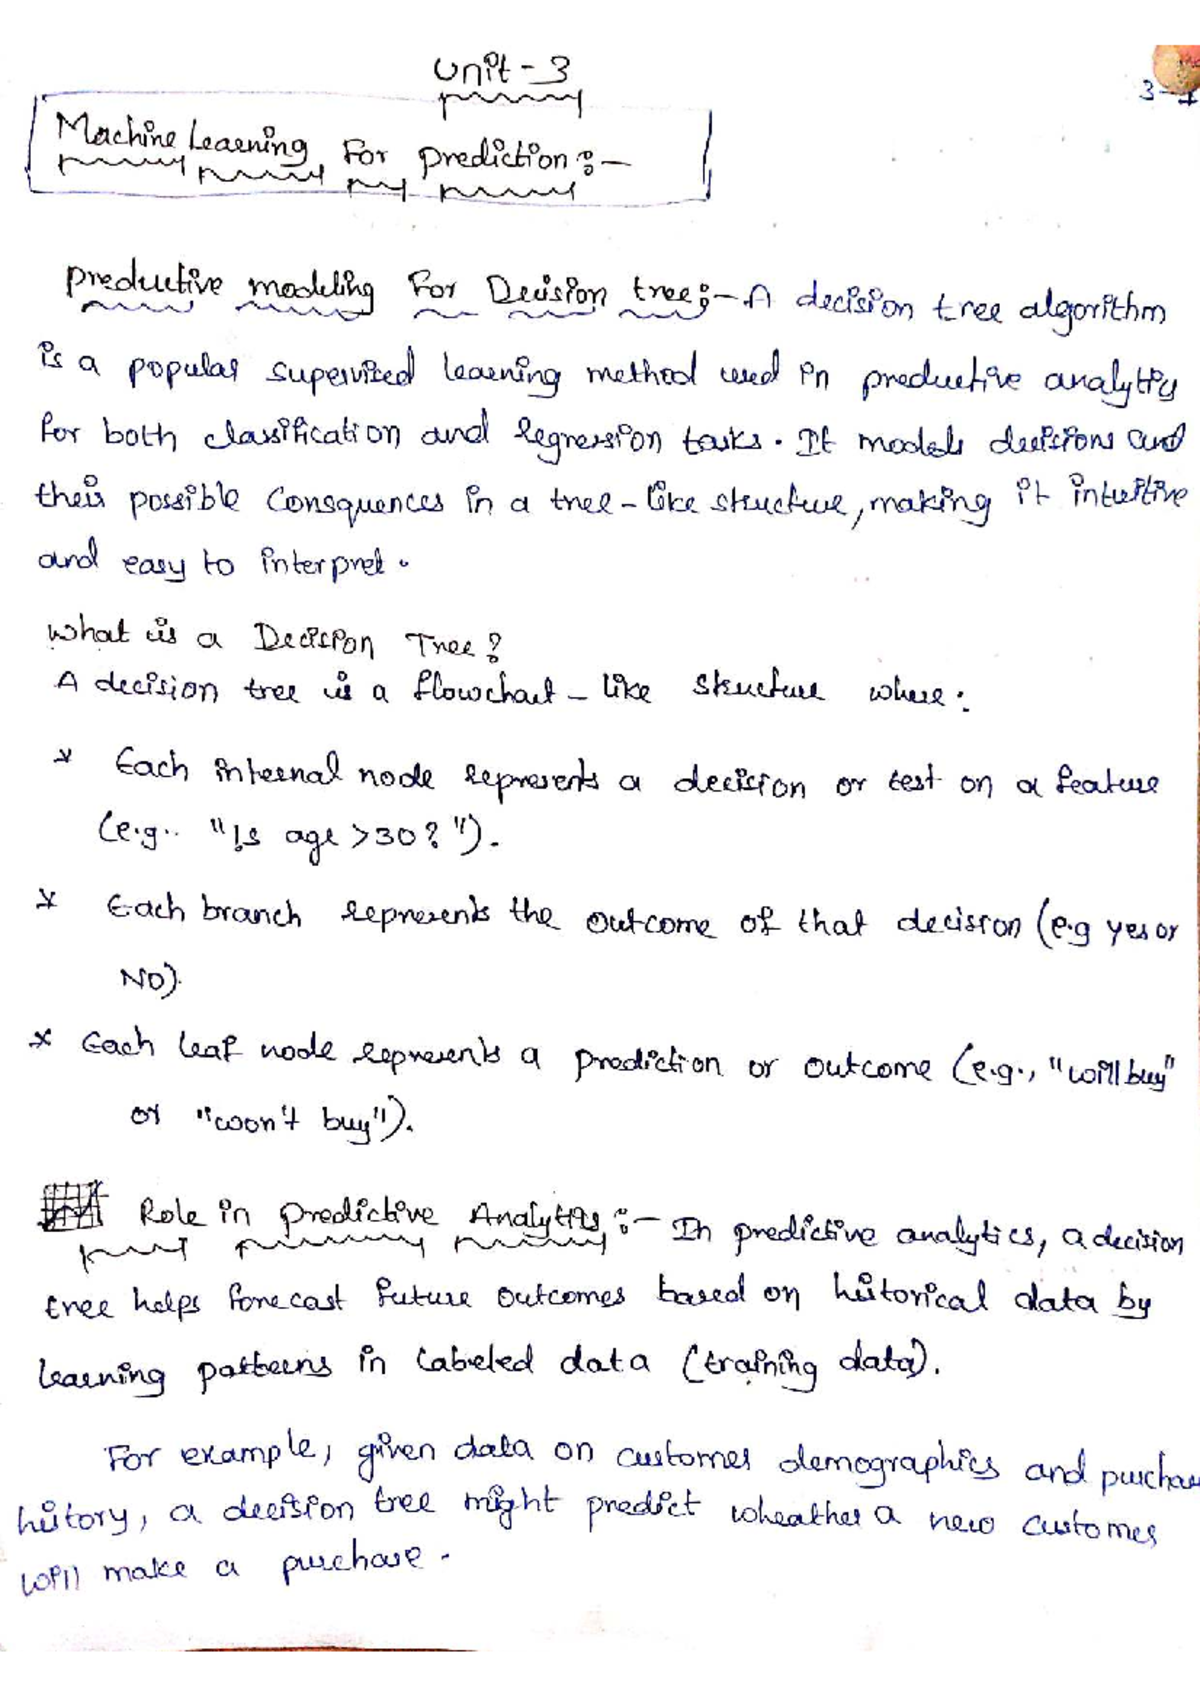 Unit - 3
3-1
Machine Learning For prediction :-
preductive modeling For Decision tree :- A decision tree algorithm
is a popular supervised learning method used in preductive analytics
for both classification and regression tasks. It models decisions and
their possible Consquences in a tree-like structure, making it intuitive
and easy to interpret.
What is a Decision Tree?
A decision tree is a flowchart-like structure where:
* Each internal node represents a decision or test on a feature
(e.g.. "Is age >30?").
* Each branch represents the outcome of that decision (e.g yes or
NO).
* Each leaf node represents a prediction or outcome (e.g., "will buy"
or "won't buy").
Role in predictive Analytics :- In predictive analytics, a decision
tree helps forecast future outcomes based on historical data by
learning patterns in labeled data (training data).
For example, given data on customer demographics and purchase
history, a decision tree might predict wheather a new customer
will make a purchase.